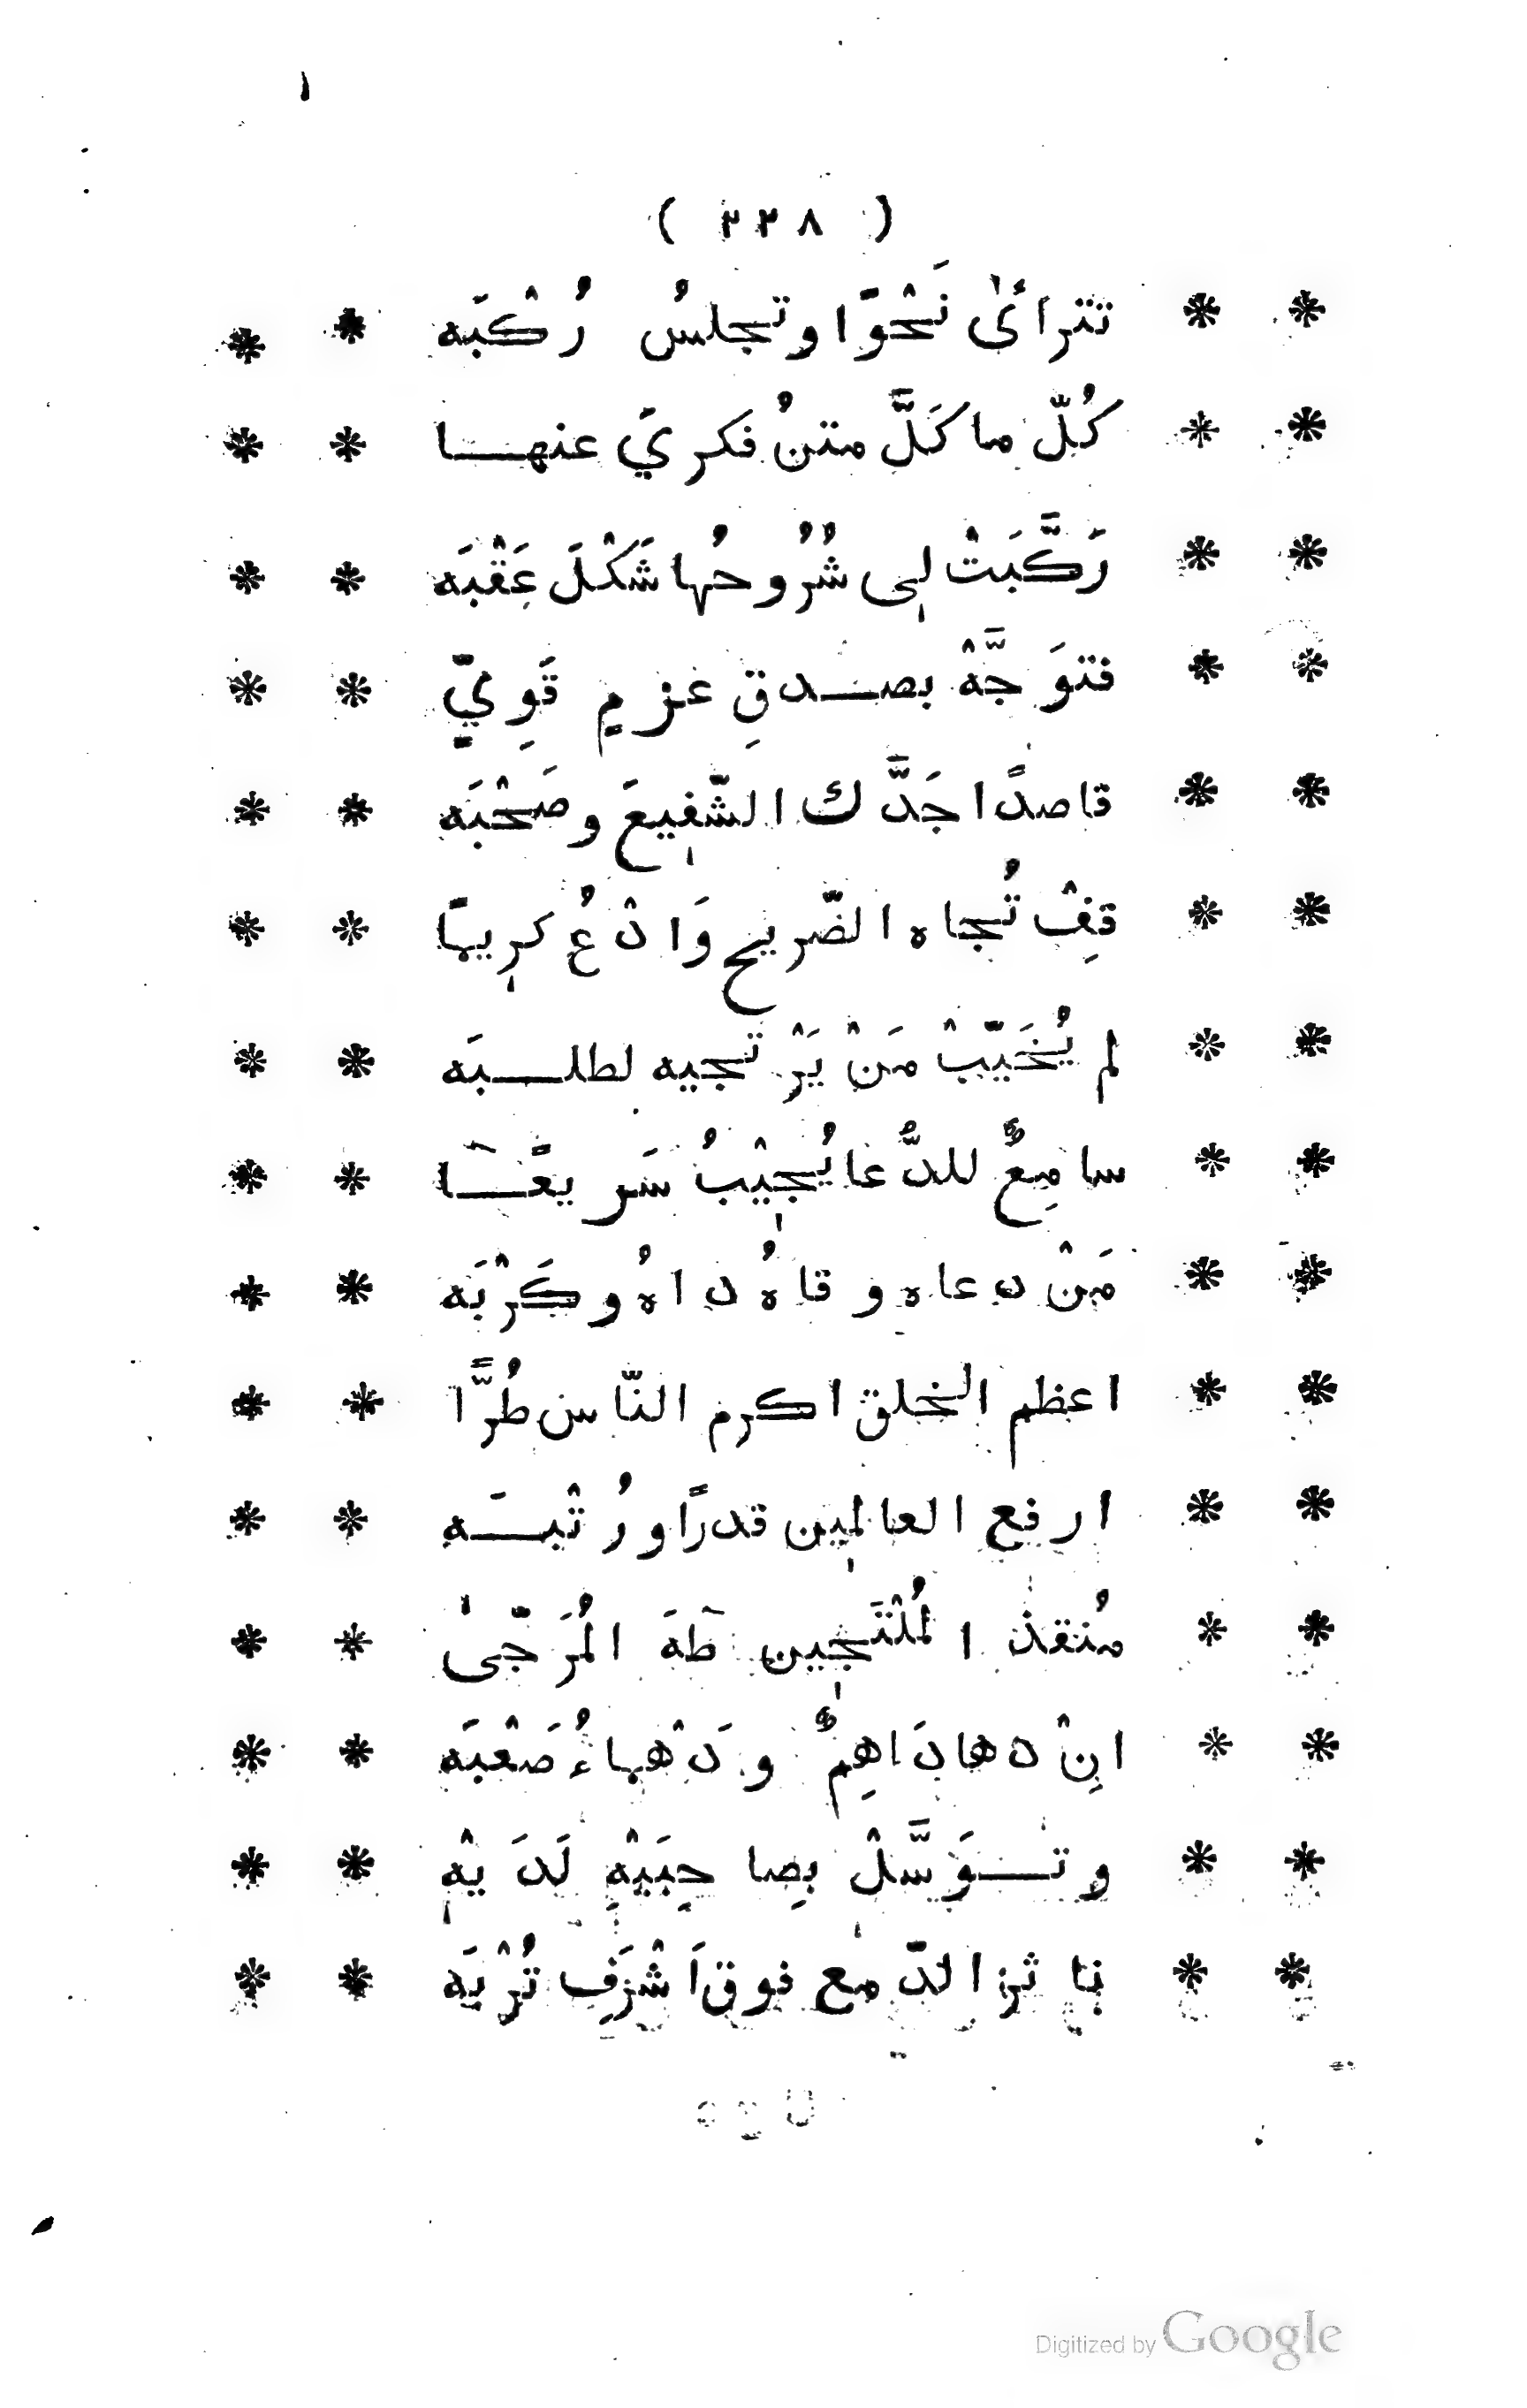 ( ٢٢٨ )
* * تترائٰى نَحْوًا وتجلسُ رُكْبَه * *
* * كُلّ ما كَلَّ متنُ فكريَ عنهــا * *
* * رَكَّبَتْ لى شُرُوحُها شَكْلَ عَقْبَه * *
* * فتوَجَّهْ بصــدقِ عزمٍ قَوِيٍّ * *
* * قاصدًا جَدَّك الشّفيعَ وصَحْبَه * *
* * قِفْ تُجاه الضّريح وَادْعُ كريمًا * *
* * لم يُخَيّبْ مَنْ يَرْتجيه لطلــبَه * *
* * سامِعٌ للدُّعا يُجيْبُ سَريعًــا * *
* * مَنْ دعاه وقاهُ داهُ وكَرْبَه * *
* * اعظم الخلق اكرم النّاس طُرًّا * *
* * ارفع العالمين قدرًا ورُتْبــَه * *
* * مُنقذ المُلْتَجين طٰهَ المُرَجّىٰ * *
* * اِنْ دها دَاهِمٌ ودَهْماءُ صَعْبَه * *
* * وتــوَسَّلْ بِصاحِبَيْهِ لَدَيْهِ * *
* * ناثر الدّمع فوق اَشْرَفِ تُرْبَه * *
Digitized by Google